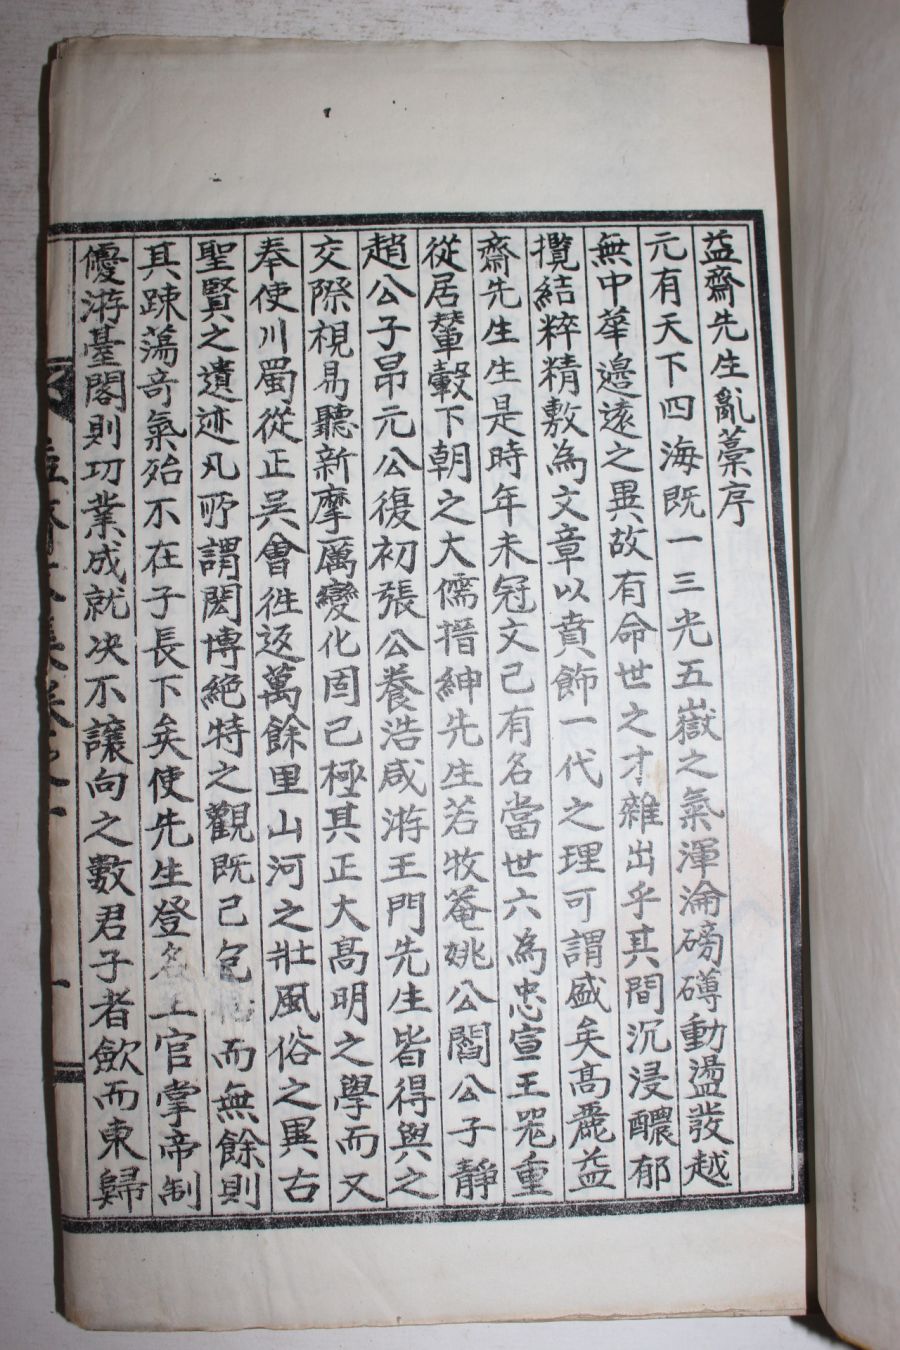 益齋先生亂藁序
元有天下四海既一三光五嶽之氣渾淪磅礡動盪發越
無中華邊遠之異故有命世之才雜出乎其間沉浸醲郁
攬結粹精敷為文章以賁飾一代之理可謂盛矣高麗益
齋先生生是時年未冠文已有名當世六為忠宣王器重
從居輦轂下朝之大儒搢紳先生若牧菴姚公閻公子靜
趙公子昂元公復初張公養浩咸游王門先生皆得與之
交際視易聽新摩厲變化固已極其正大高明之學而又
奉使川蜀從正吳會徃返萬餘里山河之壯風俗之異古
聖賢之遺迹凡所謂閎博絶特之觀既已包括而無餘則
其踈蕩奇氣殆不在子長下矣使先生登名王官掌帝制
優游臺閣則功業成就决不讓向之數君子者歛而東歸